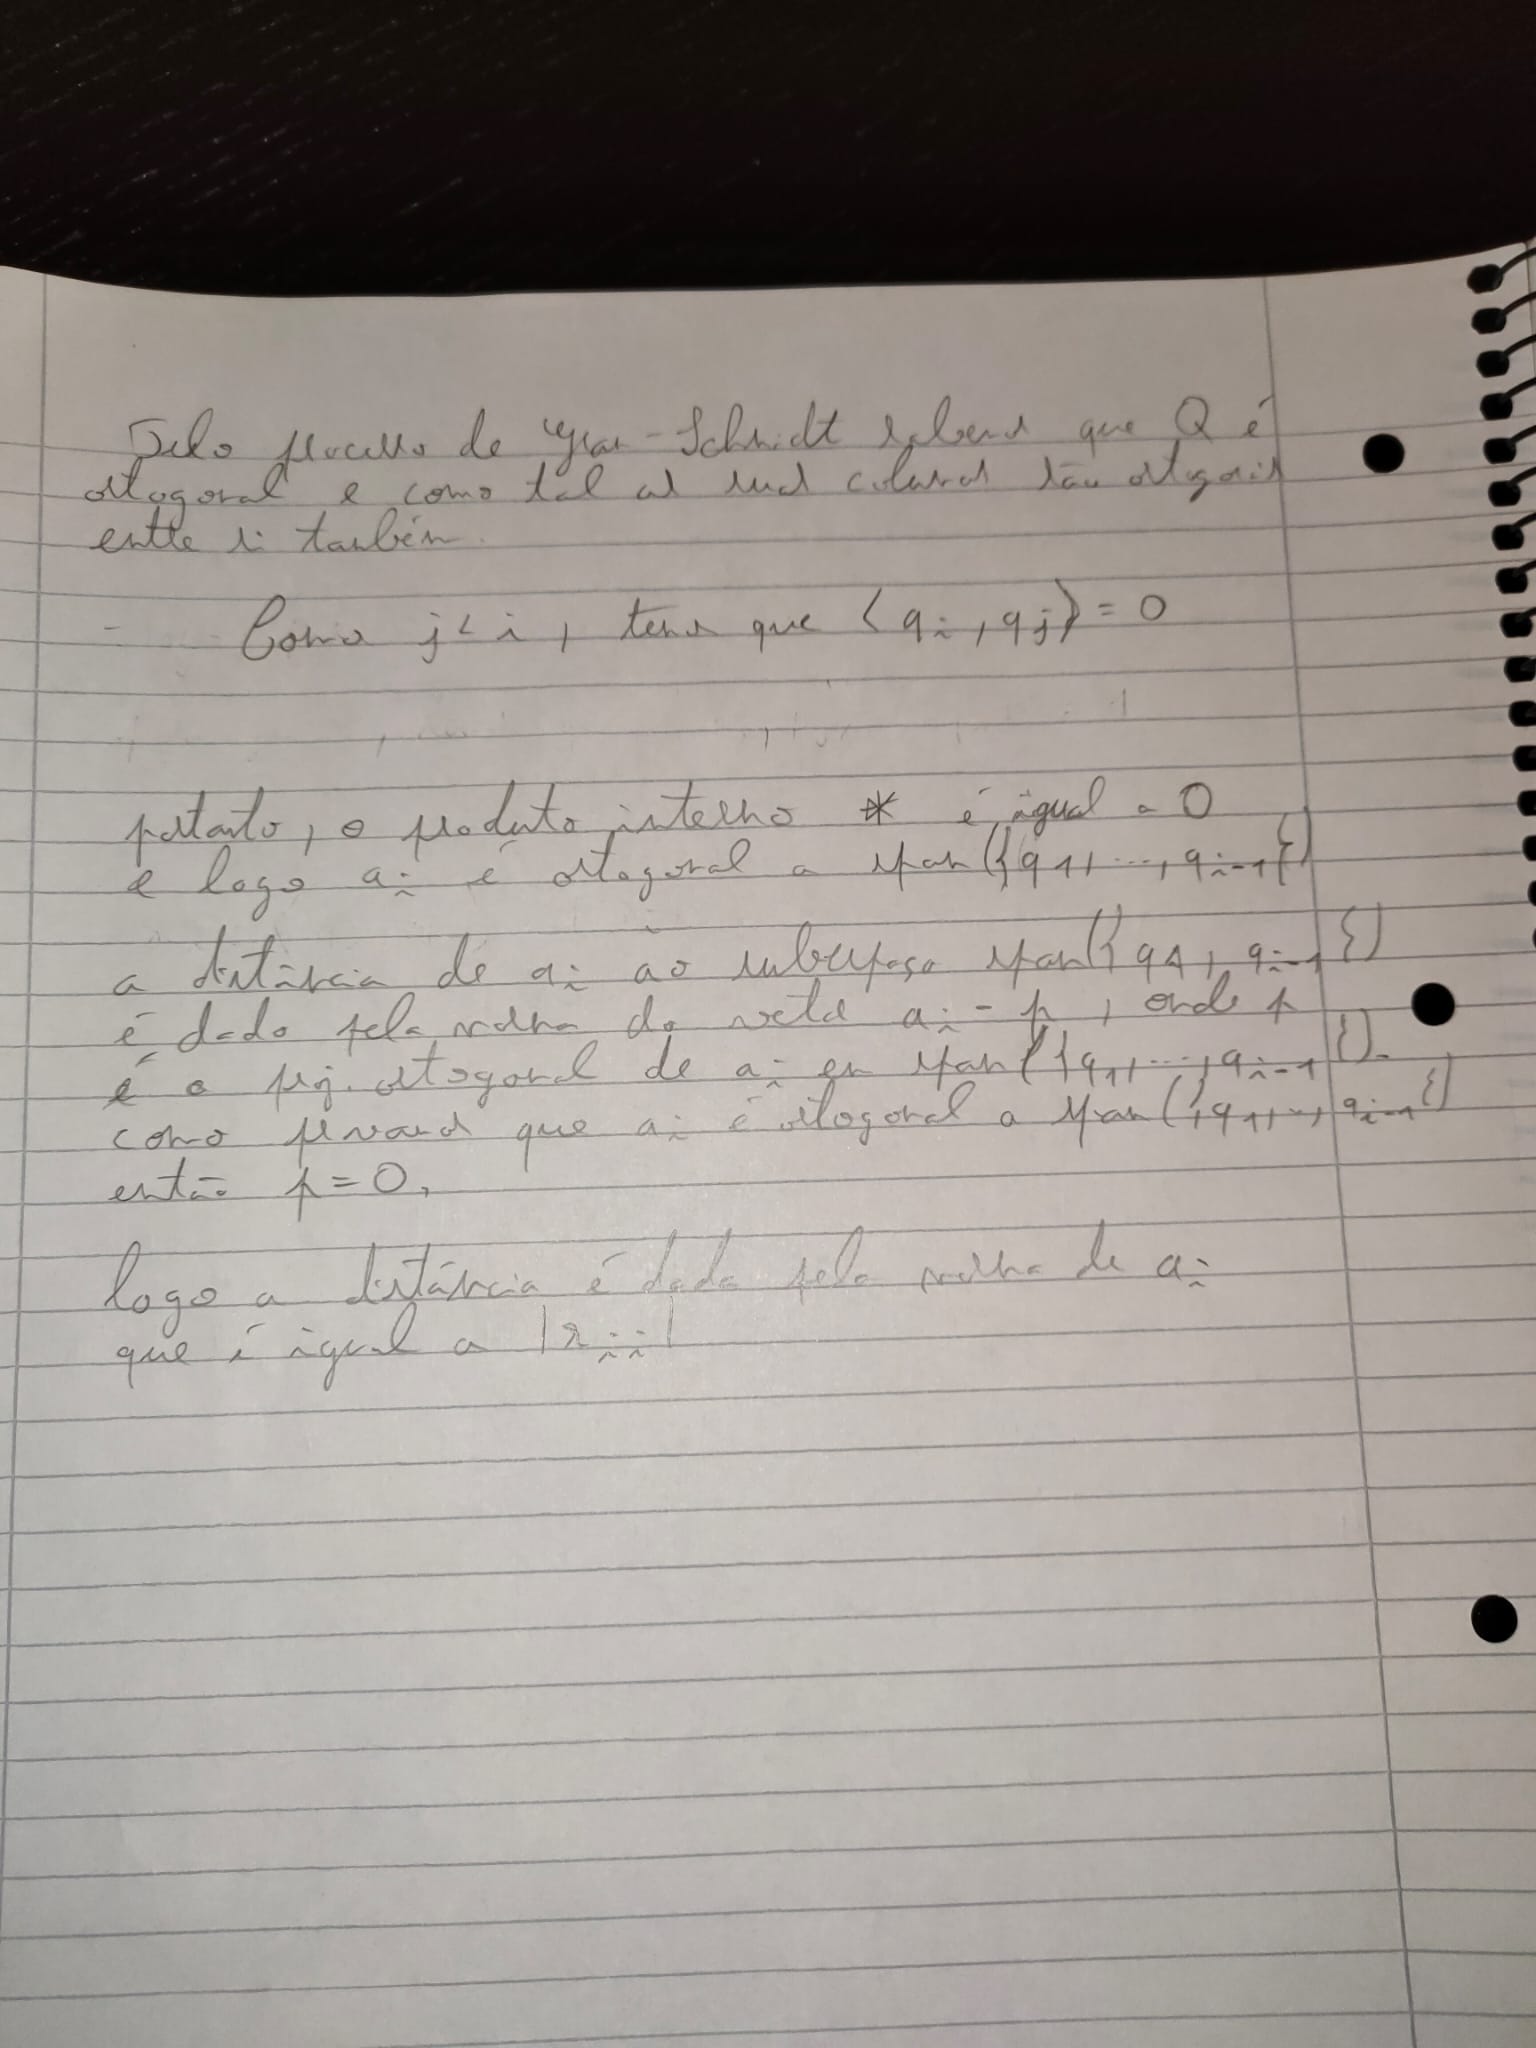 Pelo processo de Gram-Schmidt sabemos que Q é
ortogonal e como tal as suas colunas são ortogonais
entre si também.
- Como j < i, temos que ⟨q_i, q_j⟩ = 0
portanto, o produto interno * é igual a 0
e logo a_i é ortogonal a span({q_1, ..., q_{i-1}})
a distância de a_i ao subespaço span({q_1, q_{i-1}})
é dado pela norma do vetor a_i - p, onde p
é a proj. ortogonal de a_i em span({q_1, ..., q_{i-1}}).
como provamos que a_i é ortogonal a span({q_1, ..., q_{i-1}})
então p = 0,
logo a distância é dada pela norma de a_i
que é igual a |r_{ii}|